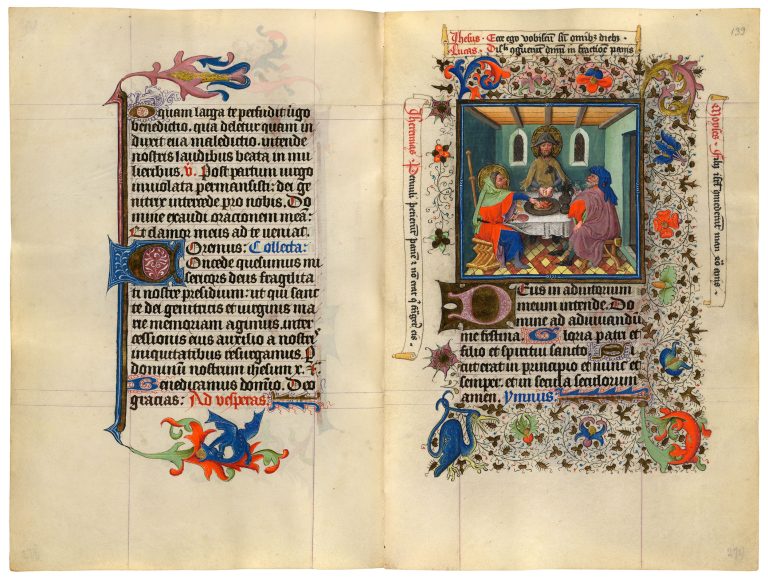 O quam larga te perfudit virgo
benedictio, qua deletur quam in
duxit eva maledictio. intende
nostris laudibus beata in mu
lieribus. V. Post partum virgo
inviolata permansisti: dei ge
nitrix intercede pro nobis. Do
mine exaudi orationem meā:
Et clamor meus ad te veniat.
Oremus: Collecta:
Concede quesumus mi
sericors deus fragilita
ti nostre presidium: ut qui sanc
te dei genitricis et virginis ma
rie memoriam agimus, inter
cessionis eius auxilio a nostris
iniquitatibus resurgamus. P
dominū nostrum ihesum x.
Benedicamus domino. Deo
gracias: Ad vesperas.
139
Ihesus. Ecce ego vobiscū sū omībꝫ diebꝫ
Lucas.
Iheremias
Moyses
Deus in adiutorium
meum intende. Do
mine ad adiuvandū
me festina. Gloria patri et
filio et spiritui sancto. Si
cut erat in principio et nunc et
semper, et in secula seculorum
amen. Ymnus.